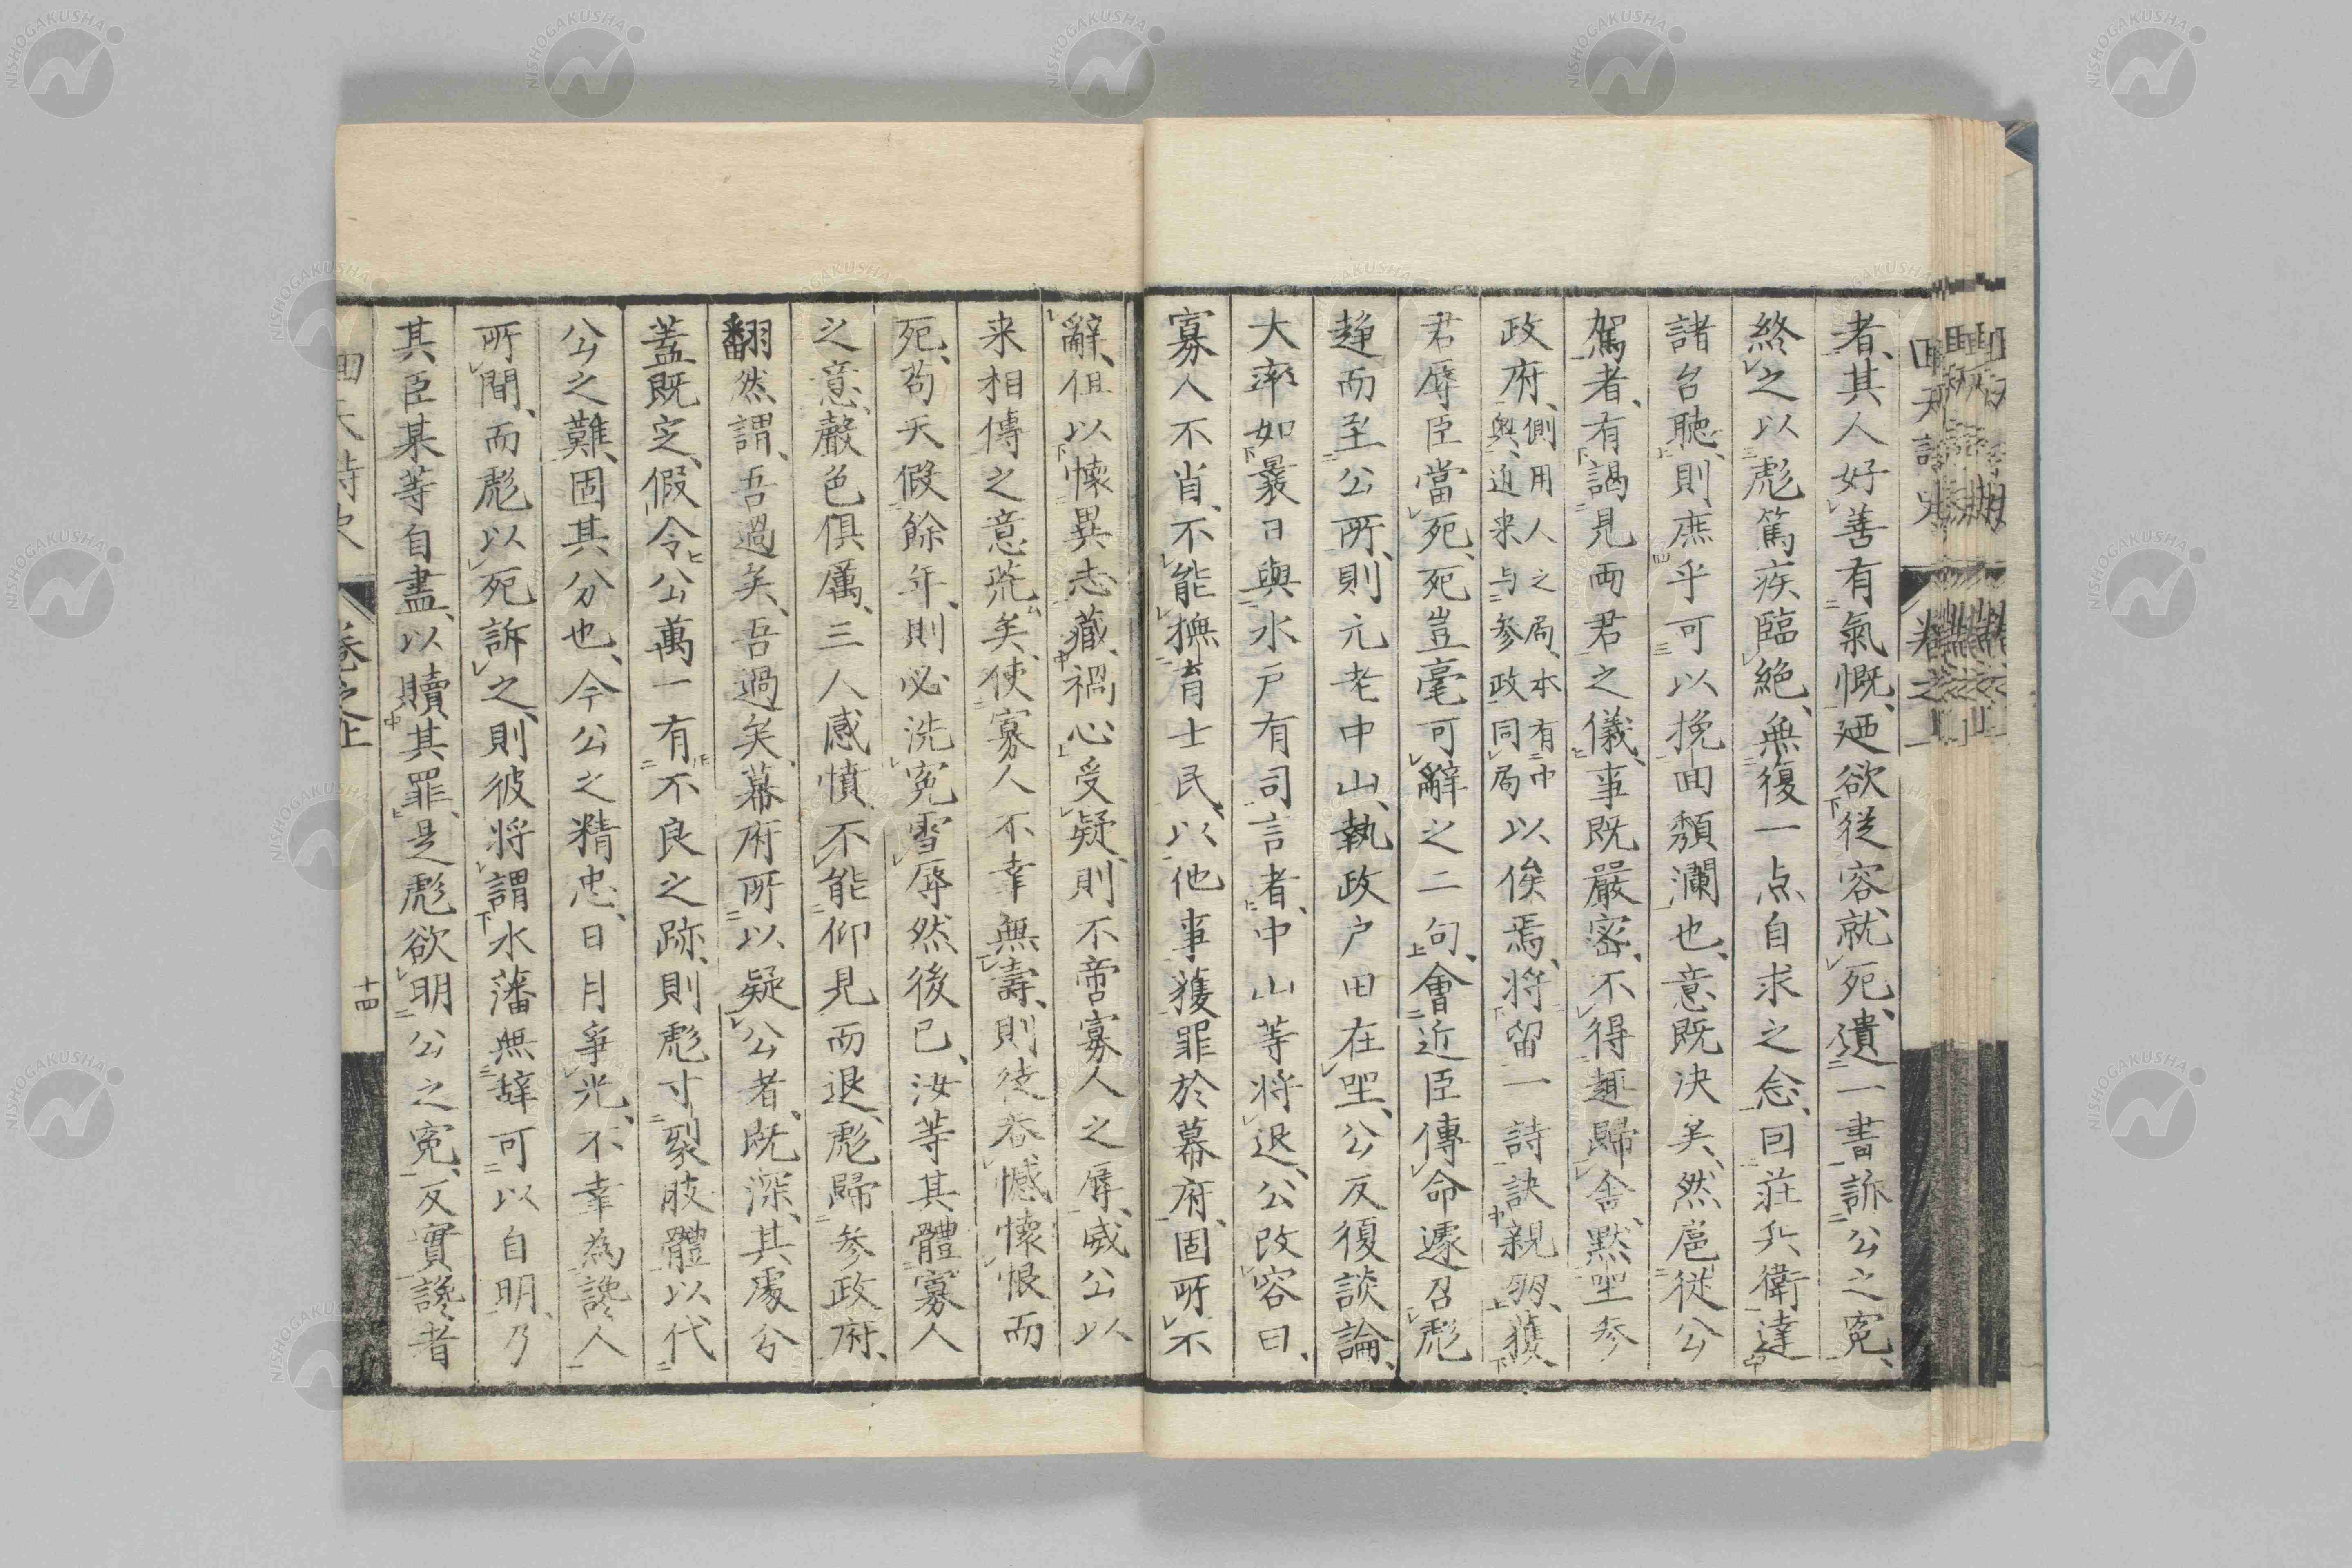 者、其人好善有氣慨、廼欲從容就死、遺一書訴公之寃、
終之以彪篤疾臨絶、無復一点自求之念、回莊兵衛達
諸台聴、則庶乎可以挽回頽瀾也、意既决矣、然扈従公
駕者、有謁見両君之儀、事既嚴密、不得趣歸舎、黙坐参
政府、側用人之局、本有中
奥、近来与参政同局以俟焉、将留一詩訣親朋、獲、
君辱臣當死、死豈毫可辭之二句、會近臣傳命遽召彪
趍而至公所、則元老中山、執政戸田在坐、公反復談論、
大率如曩日與水戸有司言者、中山等将退、公改容曰、
寡人不肖、不能撫育士民、以他事獲罪於幕府、固所不
辭、但以懐異志藏禍心受疑、則不啻寡人之辱、威公以
来相傳之意荒矣、使寡人不幸無壽、則徒呑憾懐恨而
死、苟天假餘年、則必洗寃雪辱然後已、汝等其體寡人
之意、聲色倶厲、三人感憤、不能仰見而退、彪歸参政府、
翻然謂、吾過矣、吾過矣、幕府所以疑公者、既深、其處分
蓋既定、假令公萬一有不良之跡、則彪寸裂肢體以代
公之難、固其分也、今公之精忠、日月爭光、不幸為讒人
所間、而彪以死訴之、則彼将謂水藩無辞可以自明、乃
其臣某等自盡、以贖其罪、是彪欲明公之寃、反實讒者
回天詩史
巻之上
十四